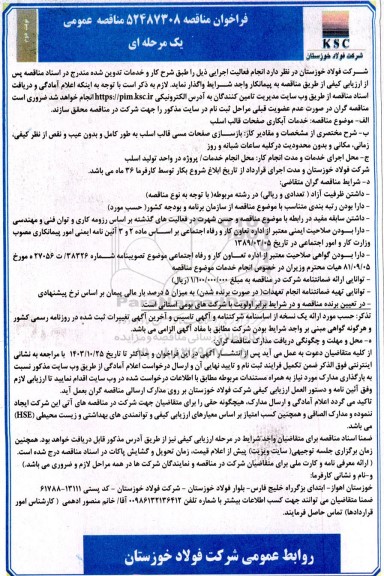 فراخوان مناقصه ۵۲۴۸۷۳۰۸ مناقصه عمومی
یک مرحله ای
نوبت دوم
KSC
شرکت فولاد خوزستان
شرکت فولاد خوزستان در نظر دارد انجام فعالیت اجرایی ذیل را طبق شرح کار و خدمات تدوین شده مندرج در اسناد مناقصه پس
از ارزیابی کیفی از طریق مناقصه به پیمانکار واجد شرایط واگذار نماید. لازم به ذکر است با توجه به اینکه اعلام آمادگی و دریافت
اسناد مناقصه از طریق وب سایت مدیریت تامین کنندگان به آدرس الکترونیکی https://pim.ksc.ir انجام خواهد شد ضروری است
مناقصه گران در صورت عدم عضویت قبلی مراحل ثبت نام در سایت مذکور را جهت شرکت در مناقصه محقق سازند.
الف- موضوع مناقصه: خدمات آبکاری صفحات قالب اسلب
ب- شرح مختصری از مشخصات و مقادیر کار: بازسازی صفحات مسی قالب اسلب به طور کامل و بدون عیب و نقص از نظر کیفی،
زمانی، مکانی و بدون محدودیت درکلیه ساعات شبانه و روز
ج- محل اجرای خدمات و مدت انجام کار: محل انجام خدمات/ پروژه در واحد تولید اسلب
شرکت فولاد خوزستان و مدت اجرای قرارداد از تاریخ ابلاغ شروع بکار توسط کارفرما ۳۶ ماه می باشد.
د- شرایط مناقصه گران متقاضی:
- داشتن ظرفیت آزاد ( تعدادی و ریالی) در رشته مربوطه( با توجه به نوع مناقصه)
- دارا بودن رتبه بندی متناسب با موضوع مناقصه از سازمان برنامه و بودجه کشور( حسب مورد)
- داشتن سابقه مفید در رابطه با موضوع مناقصه و حسن شهرت در فعالیت های گذشته بر اساس رزومه کاری و توان فنی و مهندسی
- دارا بودن صلاحیت ایمنی معتبر از اداره تعاون کار و رفاه اجتماعی بر اساس ماده ۲ و ۳ آئین نامه ایمنی امور پیمانکاری مصوب
وزارت کار و امور اجتماعی در تاریخ ۱۳۸۹/۰۳/۰۵
- دارا بودن گواهی صلاحیت معتبر از اداره تعاون کار و رفاه اجتماعی موضوع تصویبنامه شماره ۳۸۳۲۶/ت ۲۷۰۵۶ ه مورخ
۸۱/۰۹/۰۵ هیات محترم وزیران در خصوص انجام خدمات موضوع مناقصه
- توانایی ارائه ضمانتنامه شرکت در مناقصه به مبلغ (ریال)
- توانایی تهیه ضمانتنامه انجام تعهدات( در صورت برنده شدن) به میزان ۵ درصد بار مالی پیمان بر اساس نرخ پیشنهادی
- در تعیین برنده مناقصه و در شرایط برابر اولویت با شرکت های بومی استانی است
تذکر: حسب مورد ارائه یک نسخه از اساسنامه شرکتنامه و آگهی تاسیس و آخرین آگهی تغییرات ثبت شده در روزنامه رسمی کشور
و هرگونه گواهی مبنی بر واجد شرایط بودن شرکت مطابق با مفاد آگهی الزامی می باشد.
ه- محل و مهلت و چگونگی دریافت مدارک مناقصه گران:
از کلیه متقاضیان دعوت به عمل می آید پس از انتشار آگهی در این فراخوان و حداکثر تا تاریخ ۱۴۰۳/۱۰/۲۵ با مراجعه به نشانی
اینترنتی فوق الذکر ضمن تکمیل فرایند ثبت نام و تایید نهایی آن و ارسال درخواست اعلام آمادگی از طریق وب سایت مذکور نسبت
به بارگذاری مدارک مورد نیاز به همراه مستندات مربوطه مطابق با اطلاعات درخواست شده در وب سایت اقدام نمایید تا ارزیابی لازم
وفق آئین نامه و دستور العمل ارزیابی کیفی شرکت فولاد خوزستان بر روی مدارک ارسالی مناقصه گران بعمل آید.
تاکید می گردد اعلام آمادگی و ارسال مدارک، هیچگونه حقی را برای متقاضیان جهت شرکت در مناقصه های آتی این شرکت ایجاد
ننموده و مدارک الصاقی و همچنین کسب امتیاز بر اساس معیارهای ارزیابی کیفی و توانمندی های بهداشتی و زیست محیطی (HSE)
می باشد.
ضمنا اسناد مناقصه برای متقاضیان واجد شرایط در مرحله ارزیابی کیفی نیز از طریق آدرس مذکور قابل دریافت خواهد بود. همچنین
زمان برگزاری جلسه توجیهی( سایت ویزیت) پیش از اعلام قیمت، زمان تحویل و گشایش پاکات در اسناد مناقصه درج شده است.
( ارائه معرفی نامه و کارت ملی برای متقاضیان شرکت در مناقصه و نمایندگان شرکت ها در همه مراحل لازم و ضروری می باشد.)
و-نام و نشانی کارفرما:
خوزستان اهواز- ابتدای بزرگراه خلیج فارس- بلوار فولاد خوزستان - شرکت فولاد خوزستان - کد پستی ۱۳۱۱۱-۶۱۷۸۸
ضمنا متقاضیان می توانند جهت کسب اطلاعات بیشتر با شماره تلفن ۰۰۹۸۶۱۳۲۱۳۶۴۱۲ آقا/ خانم منصور ادهمی ( کارشناس امور
قراردادها) تماس حاصل فرمایند.
روابط عمومی شرکت فولاد خوزستان